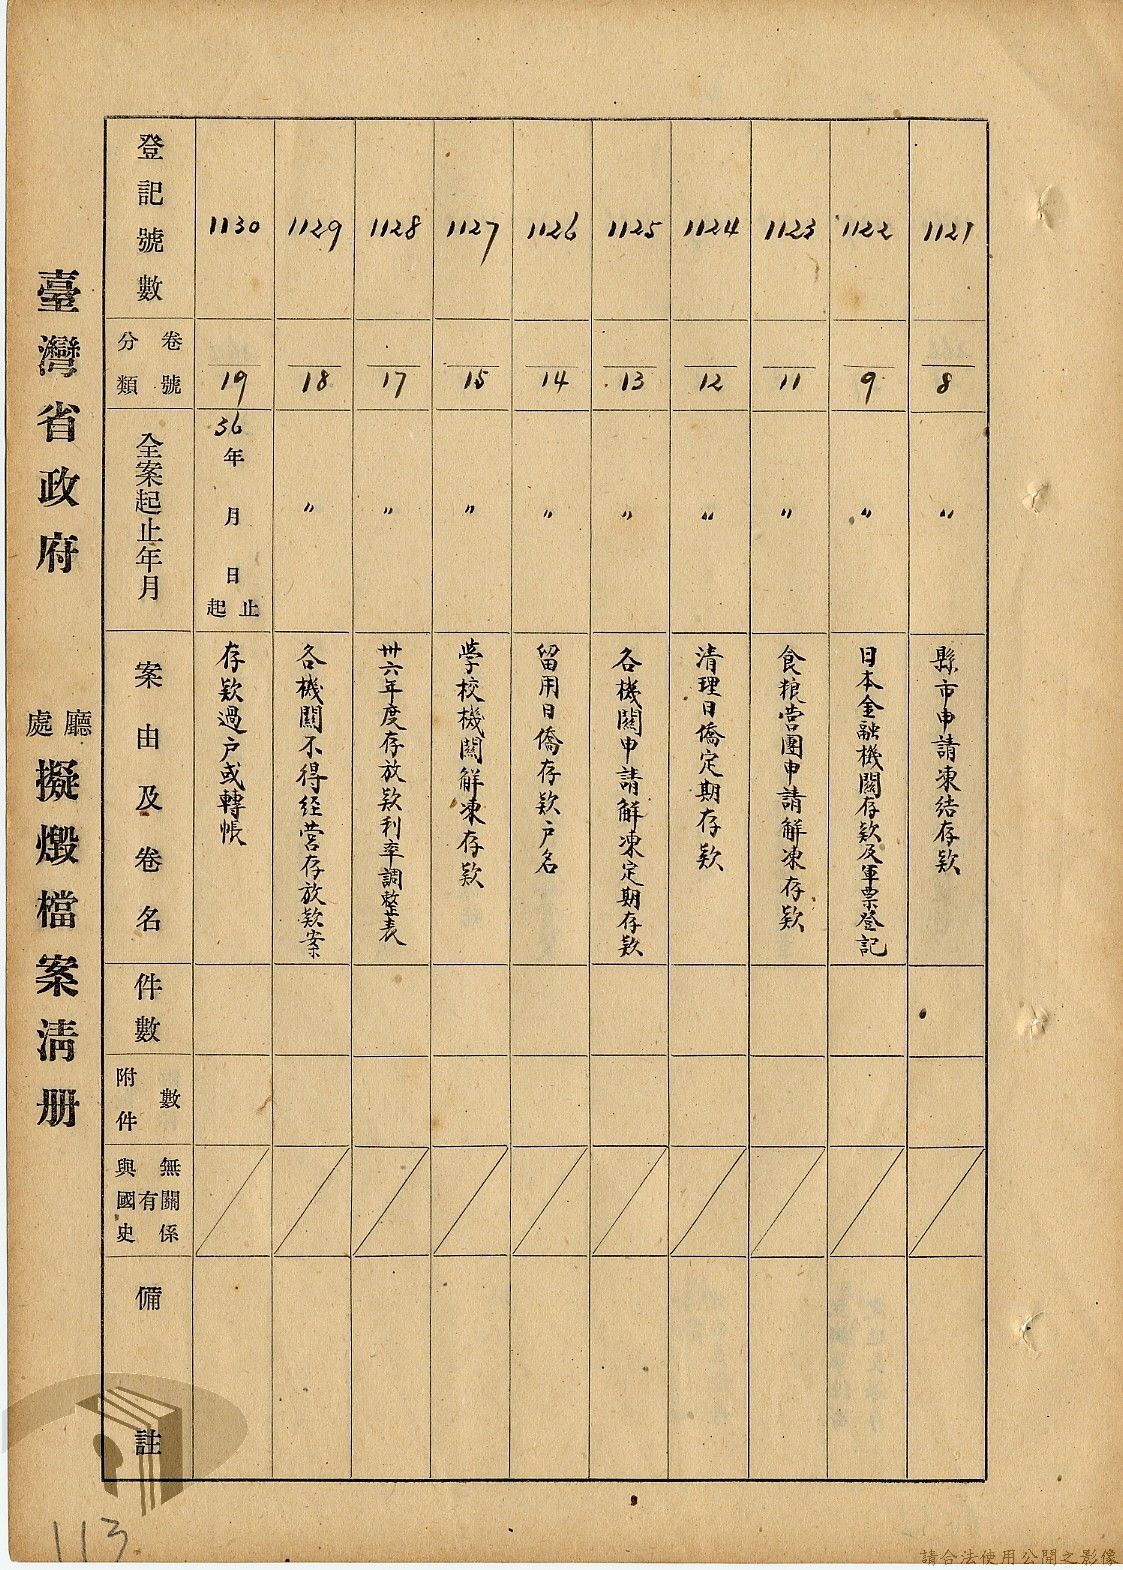 臺灣省政府 廳處 擬燬檔案清册
登記號數 分類卷號 全案起止年月 案由及卷名 件數 附件數 與國史有無關係 備註
1130 19 36年 月 日起止 存欵過户或轉帳
1129 18 〃 各機關不得経营存放欵案
1128 17 〃 卅六年度存放欵利率調整表
1127 15 〃 學校機関解凍存欵
1126 14 〃 留用日僑存欵户名
1125 13 〃 各機関申請解凍定期存欵
1124 12 〃 清理日僑定期存欵
1123 11 〃 食粮营團申請解凍存欵
1122 9 〃 日本金融機関存欵及軍票登記
1121 8 〃 縣市申請凍结存欵
113
請合法使用公開之影像